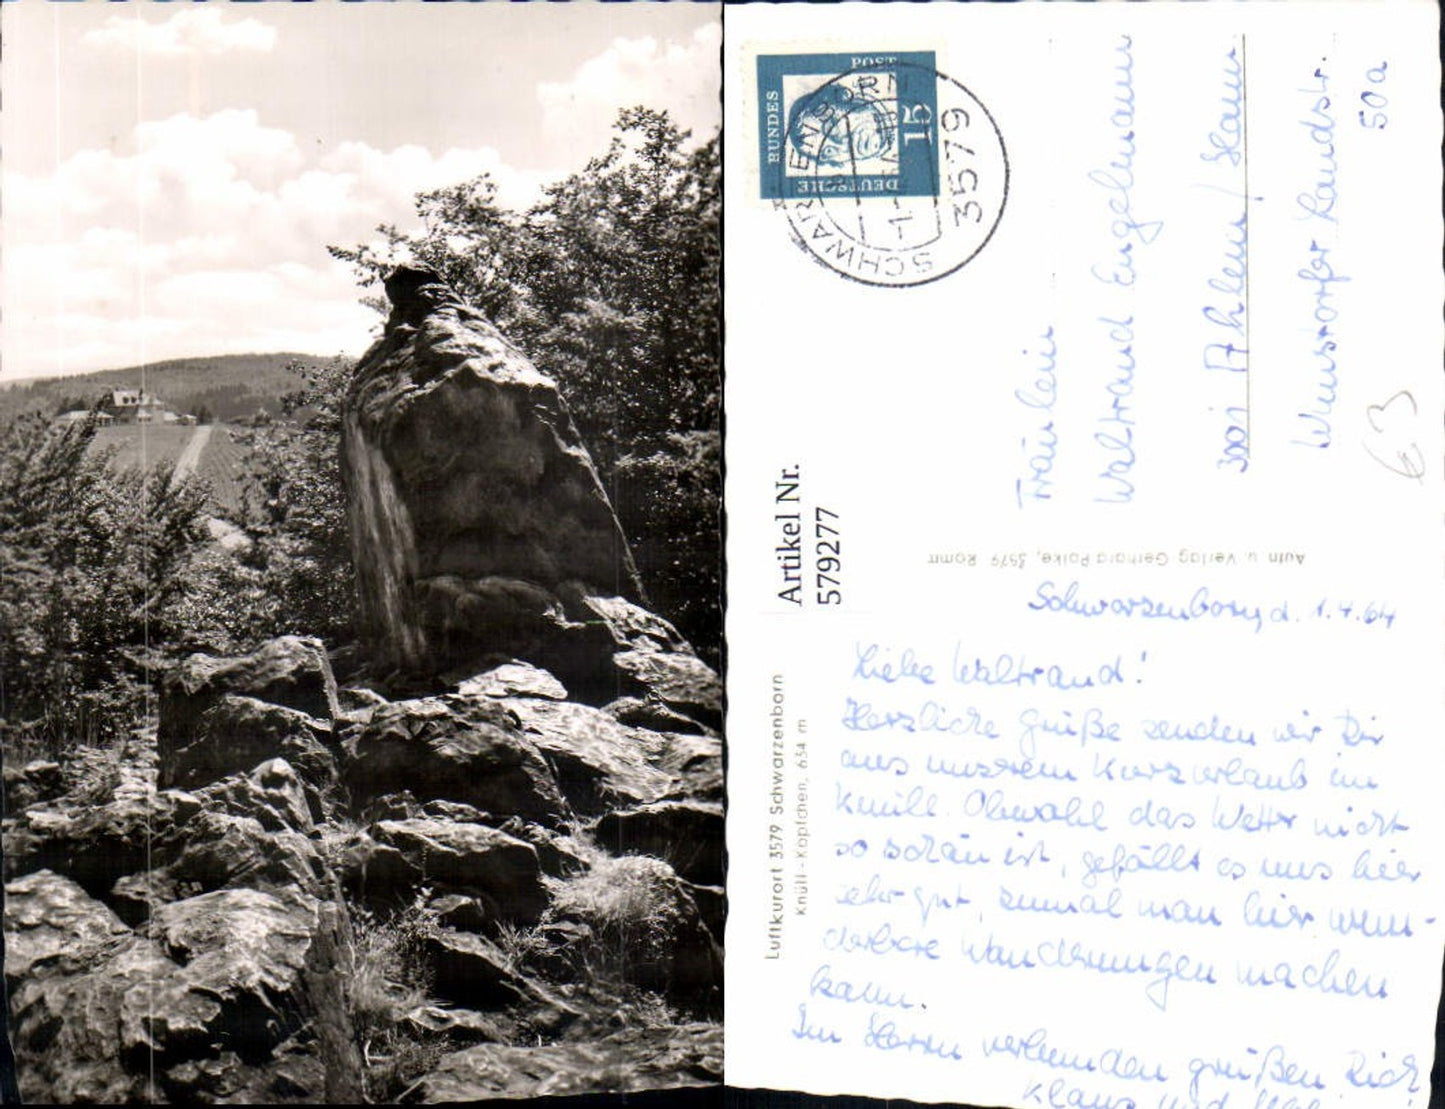 DEUTSCHE
BUNDES
POST
15
SCHWARZENBORN
3579
Fräulein
Waltraud Engelmann
3001 Ahlem / Hann.
Wunstorfer Landstr.
50a
63
Artikel Nr.
579277
Luftkurort 3579 Schwarzenborn
Knüll-Köpfchen, 634 m
Aufn u. Verlag Gerhard 3579
Schwarzenborn, d. 1.4.64
Liebe Waltraud!
Herzliche Grüße senden wir Dir
aus unserem Kurzurlaub im
Knüll. Obwohl das Wetter nicht
so schön ist, gefällt es uns hier
sehr gut, zumal man hier wun-
derbare Wanderungen machen
kann.
Im Herrn verbunden grüßen Dich
Klaus und